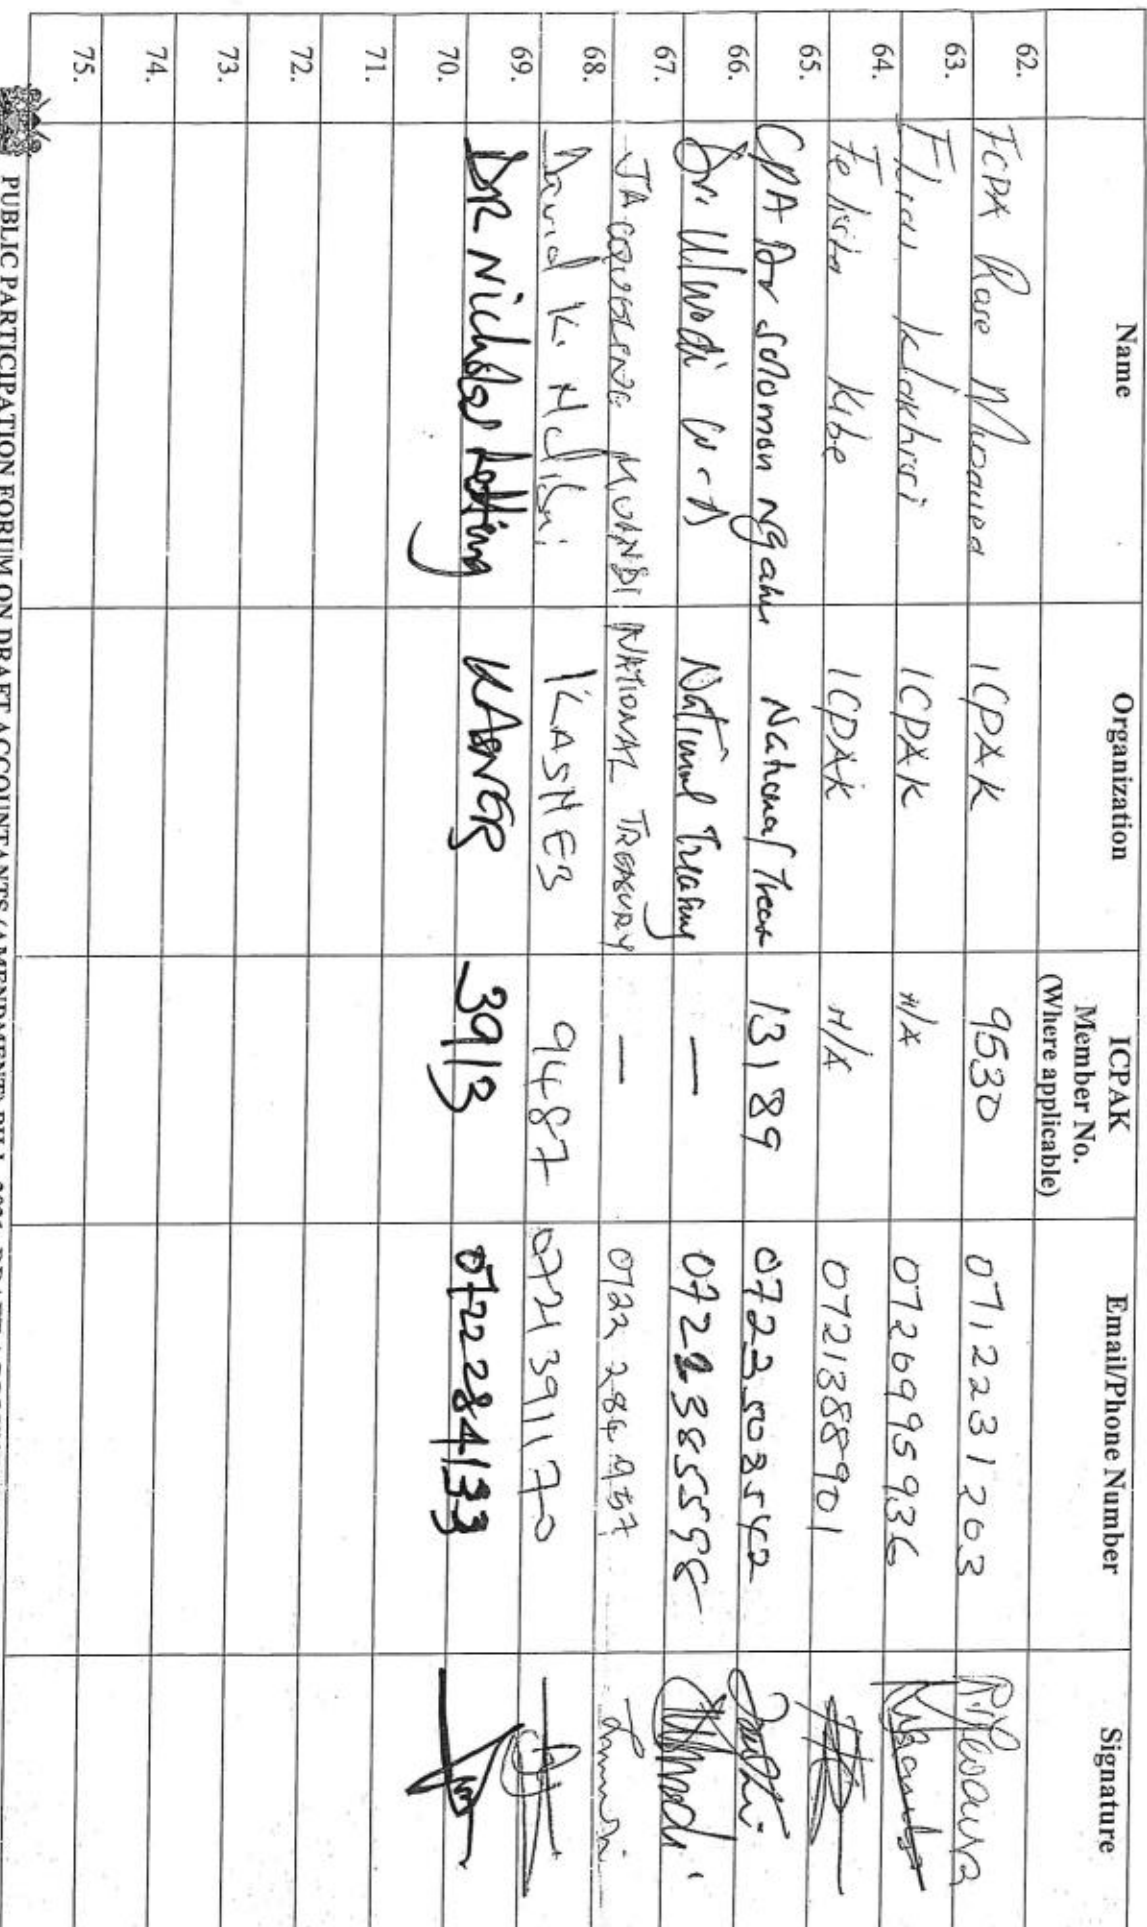 Name Organization ICPAK Member No. (Where applicable) Email/Phone Number Signature
62. FCPA Rose Mwaura ICPAK 9530 0712231263
63. ICPAK N/A 0726995936
64. Felista Kibe ICPAK N/A 0721388901
65. CPA Dr Solomon Ngahu National 13189 0723503542
66. Dr. Ulwodi National Treasury — 0722385598
67. JACQUELINE MUANDI NATIONAL TREASURY — 0722 284 957
68. David K. KASNEB 9487 0721391170
69. DR Nicholas KASNEB 3913 0722284133
70.
71.
72.
73.
74.
75.
PUBLIC PARTICIPATION FORUM ON DRAFT ACCOUNTANTS (AMENDMENT) BILL